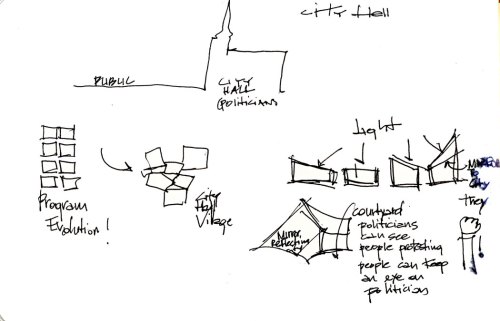 CITY Hall
PUBLIC
CITY
HALL
(politicians)
light
Program
Evolution!
City
Hall
Village
to
City
they
Mirror
Reflecting
courtyard
politicians
can see
people protesting
people can keep
an eye on
politician